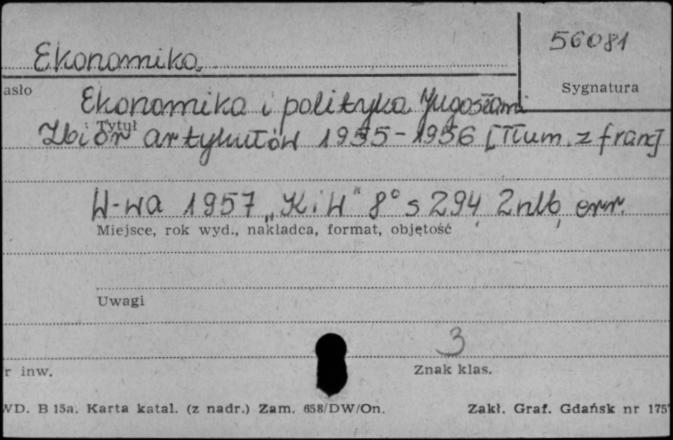 56081
Ekonomika
asło
Sygnatura
Ekonomika i polityka Jugosławi
Tytuł
Zbiór artykułów 1955-1956 [Tłum. z franc]
W-wa 1957 „K.i W" 8° s 294, 2 nlb, err.
Miejsce, rok wyd., nakładca, format, objętość
Uwagi
3
r inw.
Znak klas.
WD. B 15a. Karta katal. (z nadr.) Zam. 658/DW/On.
Zakł. Graf. Gdańsk nr 175